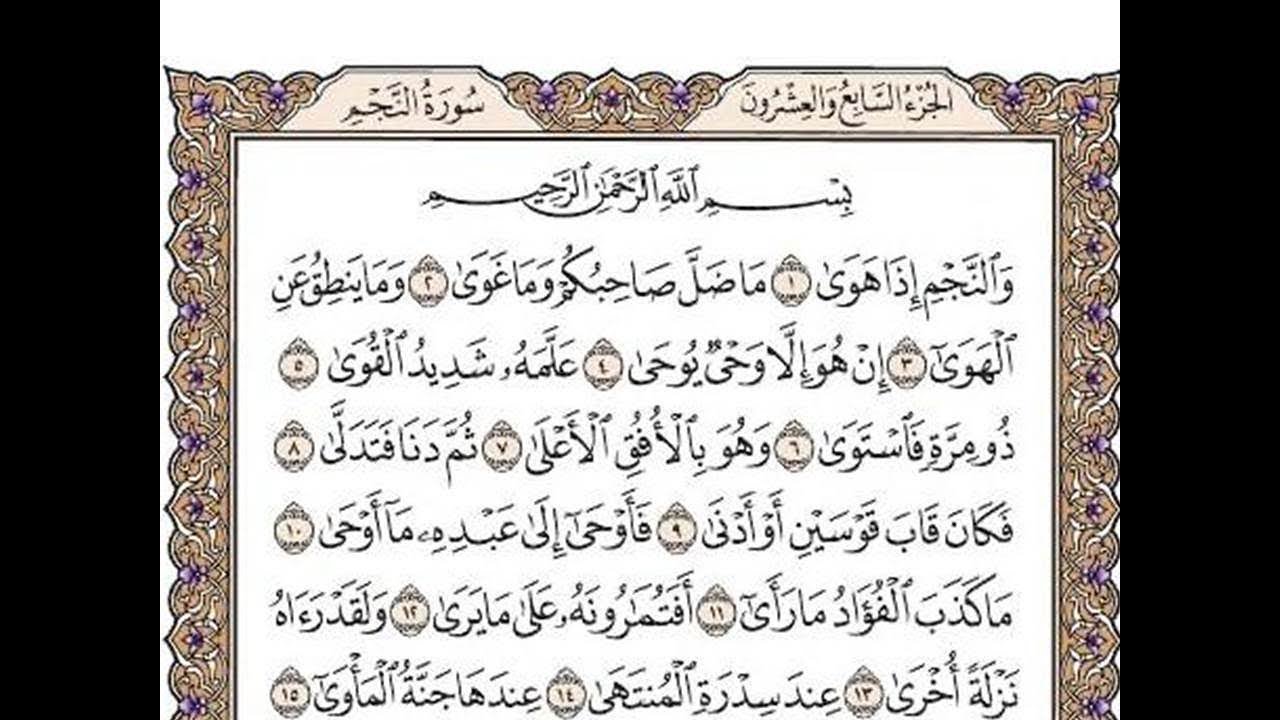 الجُزْءُ السَّابِعُ وَالعِشْرُونَ
سُورَةُ النَّجْمِ
بِسْمِ ٱللَّهِ ٱلرَّحْمَٰنِ ٱلرَّحِيمِ
وَٱلنَّجْمِ إِذَا هَوَىٰ ١ مَا ضَلَّ صَاحِبُكُمْ وَمَا غَوَىٰ ٢ وَمَا يَنطِقُ عَنِ
ٱلْهَوَىٰٓ ٣ إِنْ هُوَ إِلَّا وَحْىٌ يُوحَىٰ ٤ عَلَّمَهُۥ شَدِيدُ ٱلْقُوَىٰ ٥
ذُو مِرَّةٍ فَٱسْتَوَىٰ ٦ وَهُوَ بِٱلْأُفُقِ ٱلْأَعْلَىٰ ٧ ثُمَّ دَنَا فَتَدَلَّىٰ ٨
فَكَانَ قَابَ قَوْسَيْنِ أَوْ أَدْنَىٰ ٩ فَأَوْحَىٰٓ إِلَىٰ عَبْدِهِۦ مَآ أَوْحَىٰ ١٠
مَا كَذَبَ ٱلْفُؤَادُ مَا رَأَىٰٓ ١١ أَفَتُمَٰرُونَهُۥ عَلَىٰ مَا يَرَىٰ ١٢ وَلَقَدْ رَءَاهُ
نَزْلَةً أُخْرَىٰ ١٣ عِندَ سِدْرَةِ ٱلْمُنتَهَىٰ ١٤ عِندَهَا جَنَّةُ ٱلْمَأْوَىٰٓ ١٥